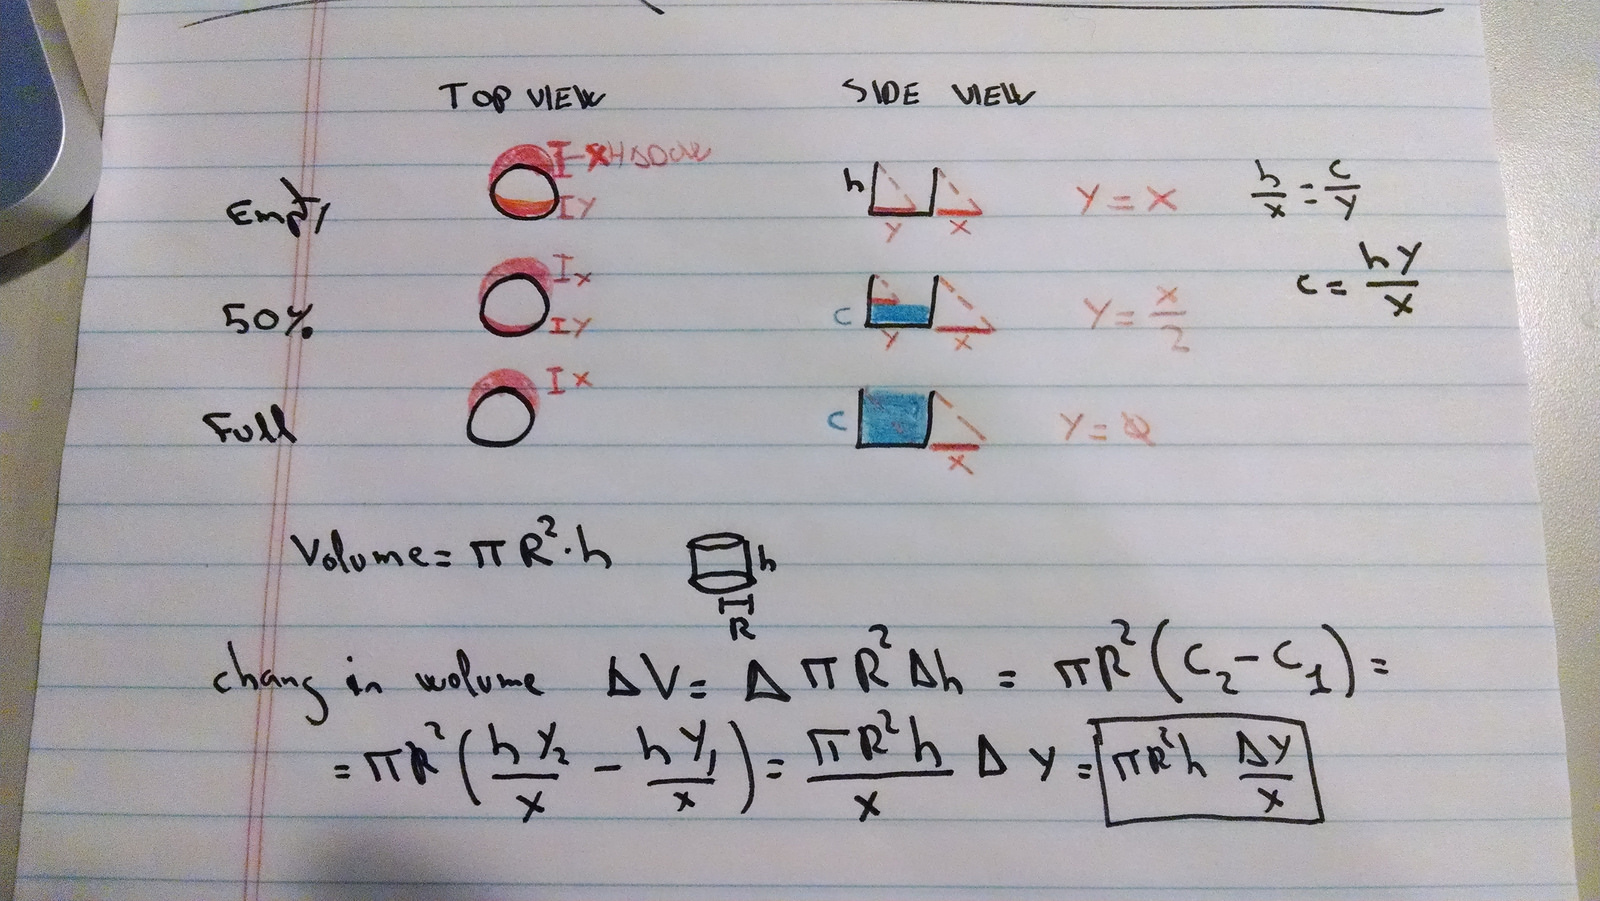 TOP VIEW SIDE VIEW
I-SHADOW
Empty IY h Y X Y = X h/x = c/y
50% IX IY C Y X Y = X/2 c = hY/X
Full IX C X Y = 0
Volume = π R² · h h
R
chang in wolume ΔV = Δ π R² Δh = πR² (C₂ - C₁) =
= πR² (h Y₂/x - h Y₁/x) = πR²h/x Δ Y = πR²h ΔY/x